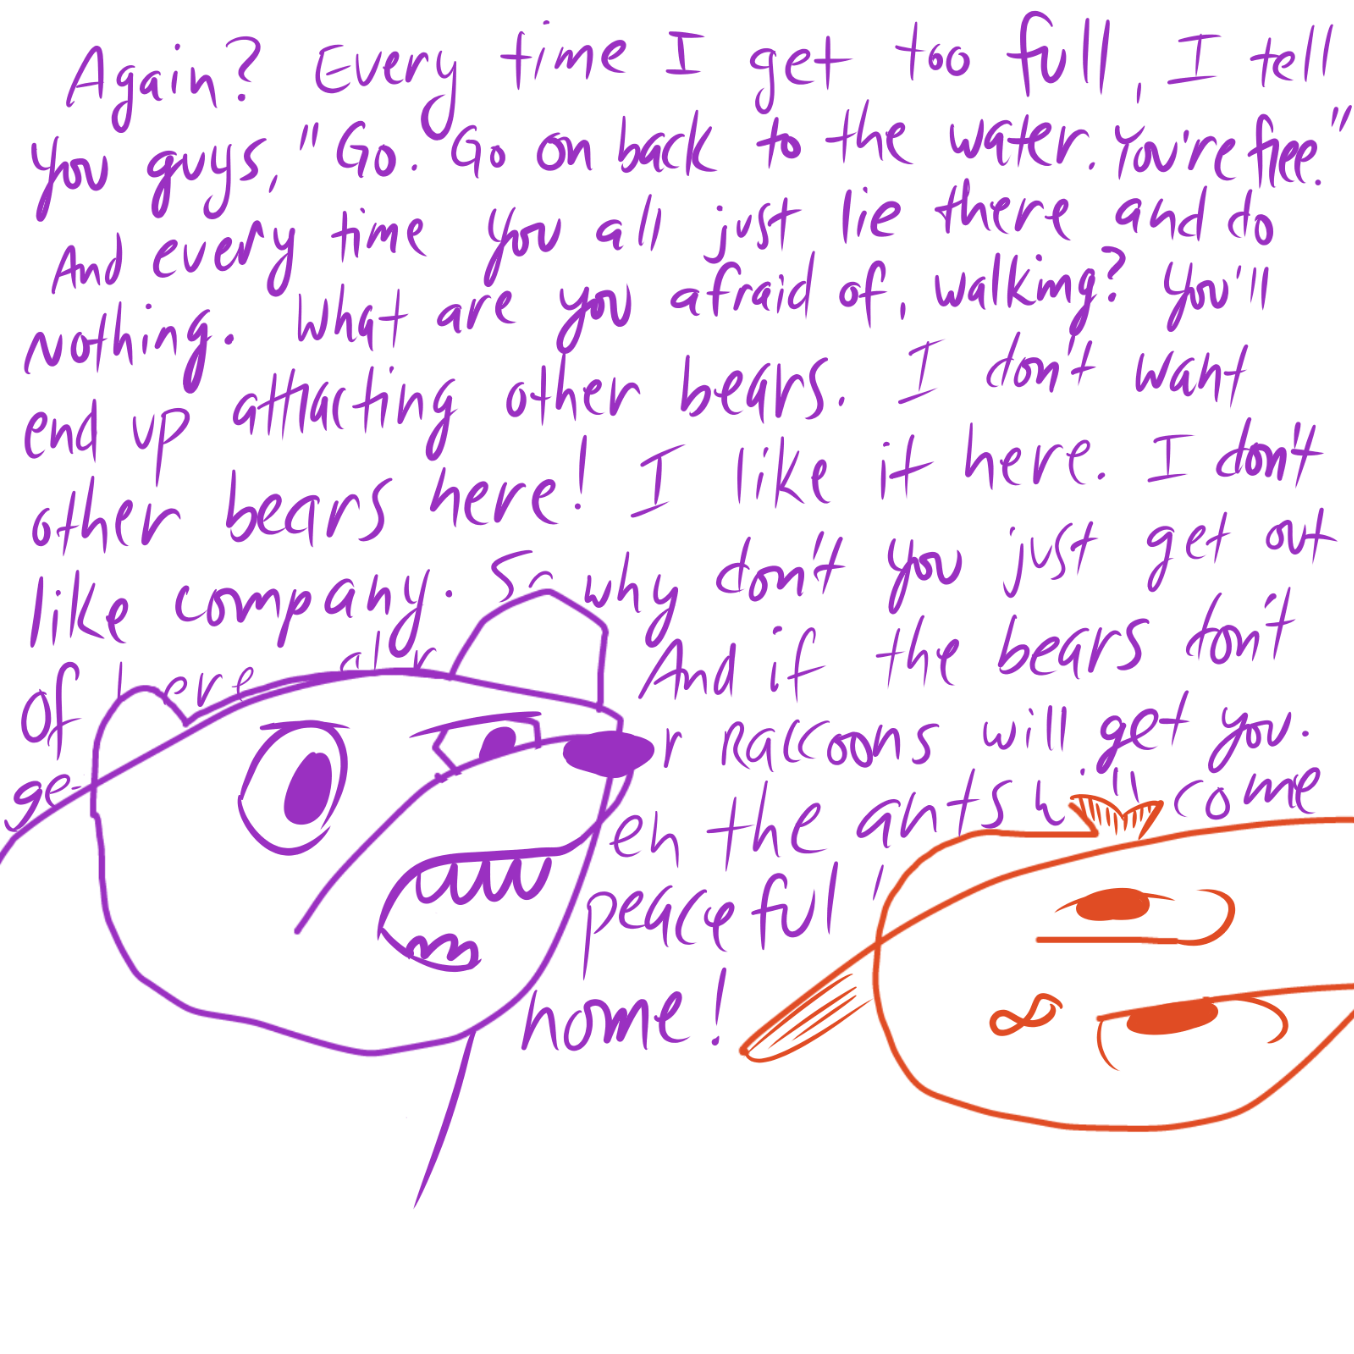 Again? Every time I get too full, I tell
you guys, "Go. Go on back to the water. You're free."
And every time you all just lie there and do
nothing. What are you afraid of, walking? You'll
end up attracting other bears. I don't want
other bears here! I like it here. I don't
like company. So why don't you just get out
of here And if the bears don't
raccoons will get you.
the ants will come
peaceful
home!